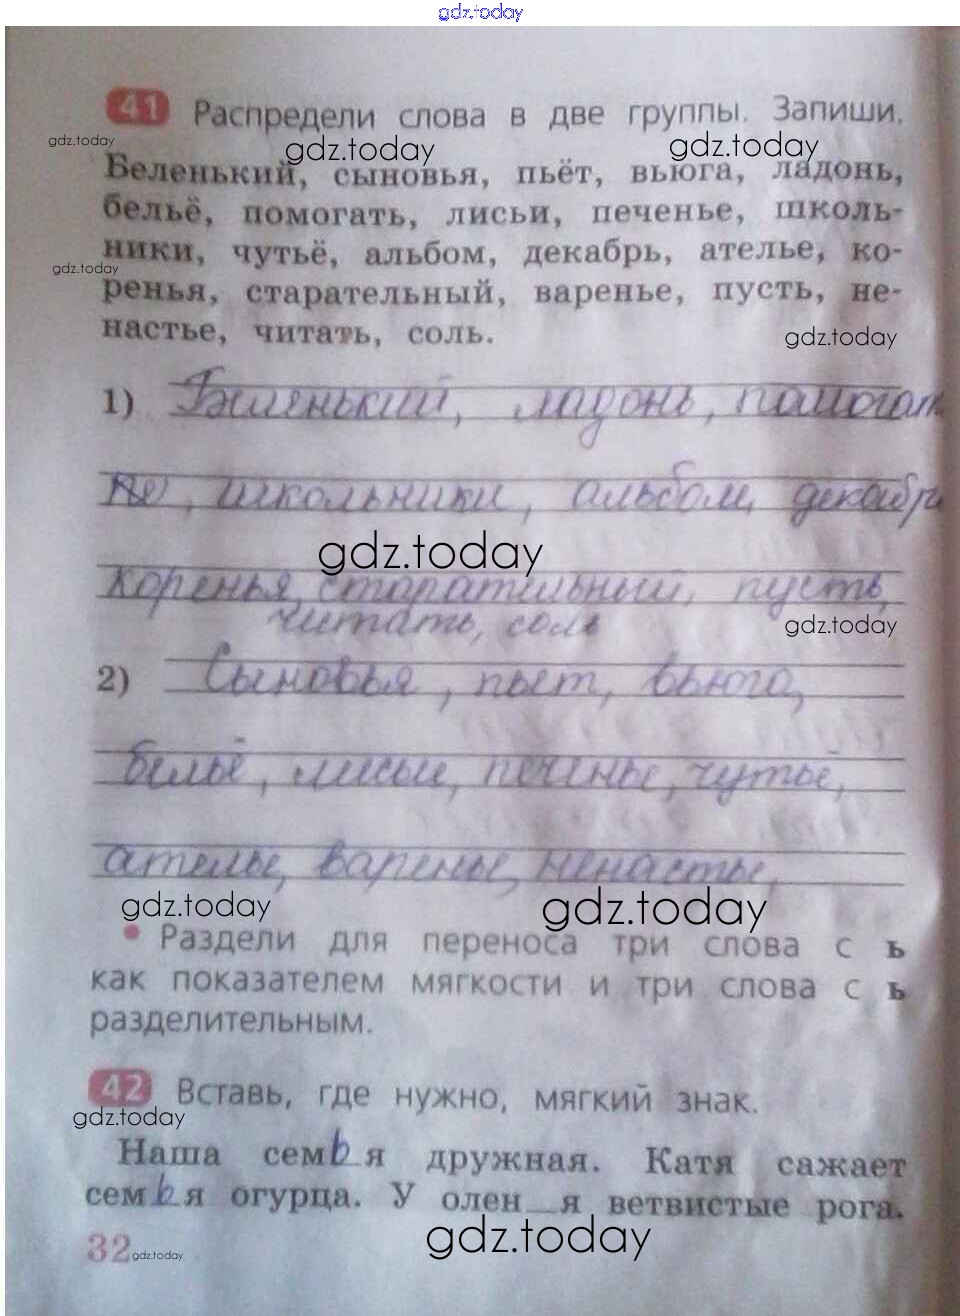 gdz.today
41 Распредели слова в две группы. Запиши.
gdz.today
gdz.today
gdz.today
Беленький, сыновья, пьёт, вьюга, ладонь,
бельё, помогать, лисьи, печенье, школь-
ники, чутьё, альбом, декабрь, ателье, ко-
gdz.today
ренья, старательный, варенье, пусть, не-
настье, читать, соль.
gdz.today
1) Беленький, ладонь, помогат
школьники, альбом, декабрь
gdz.today
коренья, старательный, пусть,
читать, соль
gdz.today
2) Сыновья, пьет, вьюга,
бельё, лисьи, печенье, чутьё,
ателье, варенье, ненастье,
gdz.today
gdz.today
• Раздели для переноса три слова с ь
как показателем мягкости и три слова с ь
разделительным.
42 Вставь, где нужно, мягкий знак.
gdz.today
Наша семья дружная. Катя сажает
семья огурца. У олен_я ветвистые рога.
gdz.today
32
gdz.today